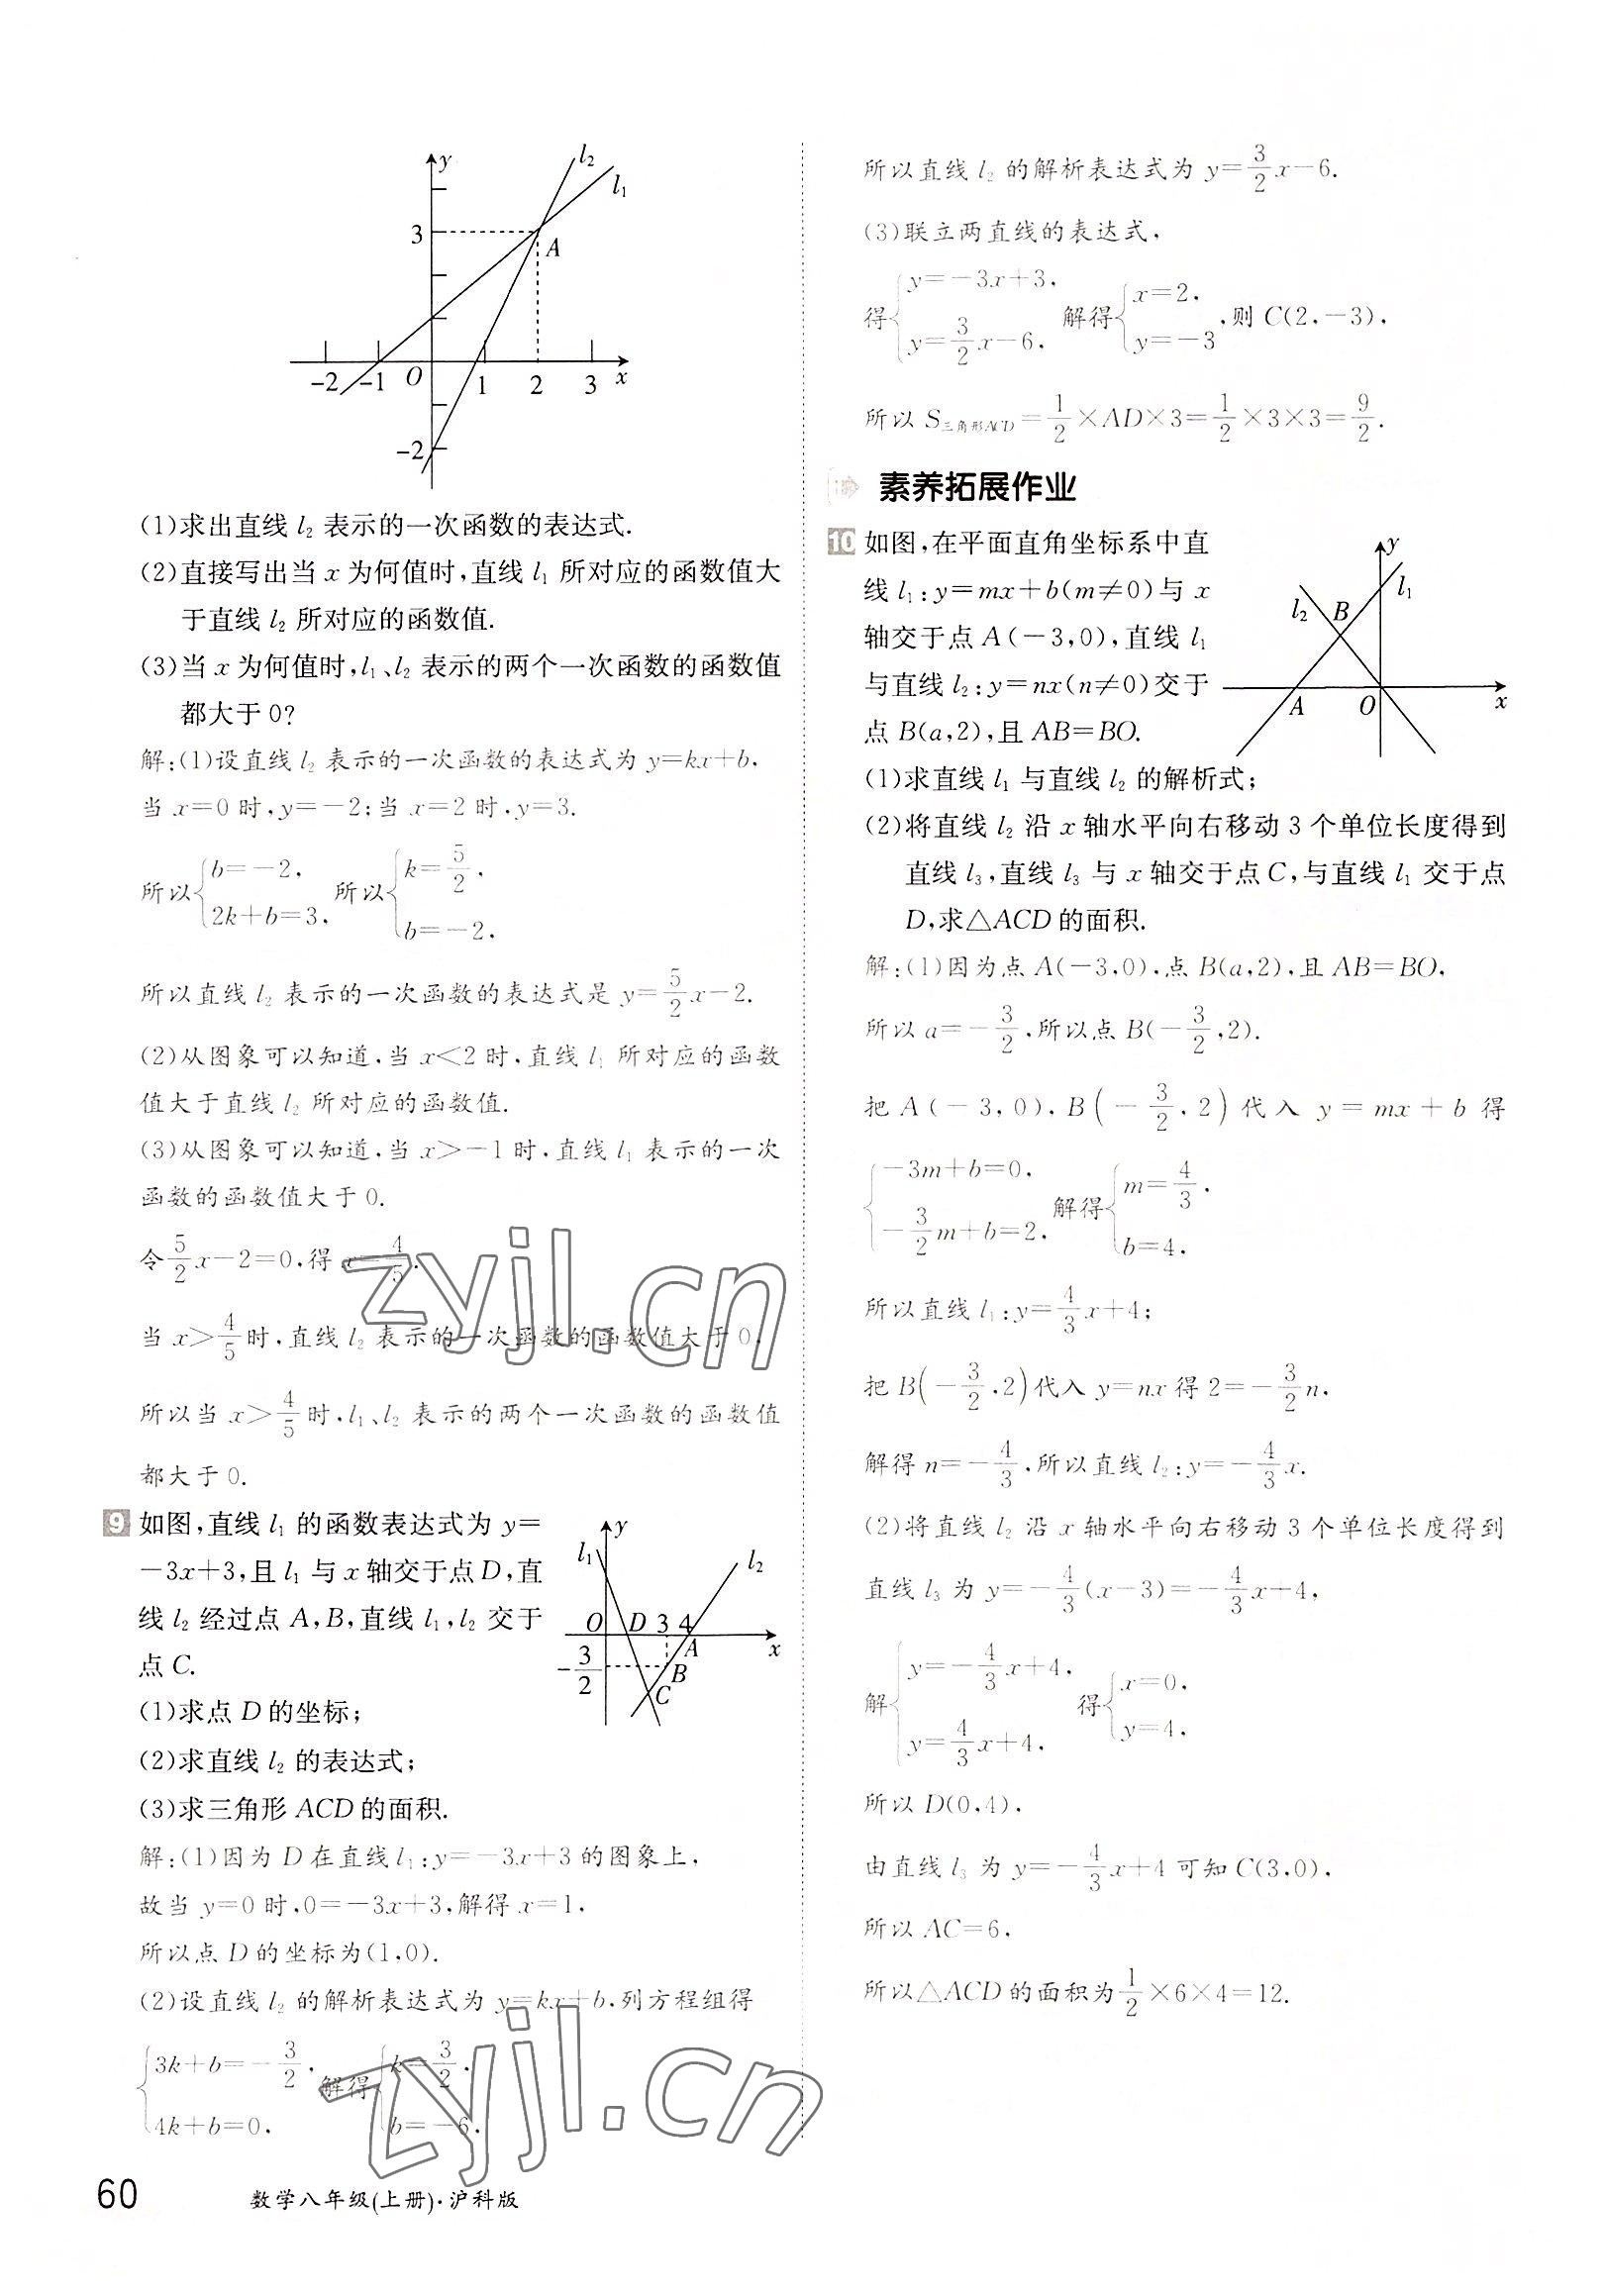 y
l₂
l₁
3
A
-2
-1
O
1
2
3
x
-2
(1)求出直线 l₂ 表示的一次函数的表达式.
(2)直接写出当 x 为何值时,直线 l₁ 所对应的函数值大
于直线 l₂ 所对应的函数值.
(3)当 x 为何值时,l₁、l₂ 表示的两个一次函数的函数值
都大于 0?
解:(1)设直线 l₂ 表示的一次函数的表达式为 y=kx+b,
当 x=0 时,y=-2;当 x=2 时,y=3.
所以{b=-2, 2k+b=3, 所以{k=5/2, b=-2,
所以直线 l₂ 表示的一次函数的表达式是 y=5/2x-2.
(2)从图象可以知道,当 x<2 时,直线 l₁ 所对应的函数
值大于直线 l₂ 所对应的函数值.
(3)从图象可以知道,当 x>-1 时,直线 l₁ 表示的一次
函数的函数值大于 0.
令5/2x-2=0,得 x=4/5.
当 x>4/5时,直线 l₂ 表示的一次函数的函数值大于 0,
所以当 x>4/5时,l₁、l₂ 表示的两个一次函数的函数值
都大于 0.
9 如图,直线 l₁ 的函数表达式为 y=
-3x+3,且 l₁ 与 x 轴交于点 D,直
线 l₂ 经过点 A,B,直线 l₁,l₂ 交于
点 C.
(1)求点 D 的坐标;
(2)求直线 l₂ 的表达式;
(3)求三角形 ACD 的面积.
y
l₁
l₂
O
D
3
4
A
x
-3/2
B
C
解:(1)因为 D 在直线 l₁:y=-3x+3 的图象上,
故当 y=0 时,0=-3x+3,解得 x=1,
所以点 D 的坐标为(1,0).
(2)设直线 l₂ 的解析表达式为 y=kx+b,列方程组得
{3k+b=-3/2, 4k+b=0, 解得{k=3/2, b=-6,
所以直线 l₂ 的解析表达式为 y=3/2x-6.
(3)联立两直线的表达式,
得{y=-3x+3, y=3/2x-6, 解得{x=2, y=-3,则 C(2,-3),
所以 S三角形ACD=1/2×AD×3=1/2×3×3=9/2.
素养拓展作业
10 如图,在平面直角坐标系中直
线 l₁:y=mx+b(m≠0)与 x
轴交于点 A(-3,0),直线 l₁
与直线 l₂:y=nx(n≠0)交于
点 B(a,2),且 AB=BO.
y
l₁
l₂
B
A
O
x
(1)求直线 l₁ 与直线 l₂ 的解析式;
(2)将直线 l₂ 沿 x 轴水平向右移动 3 个单位长度得到
直线 l₃,直线 l₃ 与 x 轴交于点 C,与直线 l₁ 交于点
D,求△ACD 的面积.
解:(1)因为点 A(-3,0),点 B(a,2),且 AB=BO,
所以 a=-3/2,所以点 B(-3/2,2).
把 A(-3,0),B(-3/2,2)代入 y=mx+b 得
{-3m+b=0, -3/2m+b=2, 解得{m=4/3, b=4,
所以直线 l₁:y=4/3x+4;
把 B(-3/2,2)代入 y=nx 得 2=-3/2n,
解得 n=-4/3,所以直线 l₂:y=-4/3x.
(2)将直线 l₂ 沿 x 轴水平向右移动 3 个单位长度得到
直线 l₃ 为 y=-4/3(x-3)=-4/3x-4,
解{y=-4/3x+4, y=4/3x+4, 得{x=0, y=4,
所以 D(0,4),
由直线 l₃ 为 y=-4/3x+4 可知 C(3,0),
所以 AC=6,
所以△ACD 的面积为1/2×6×4=12.
zyjl.cn
zyjl.cn
60
数学八年级(上册)·沪科版